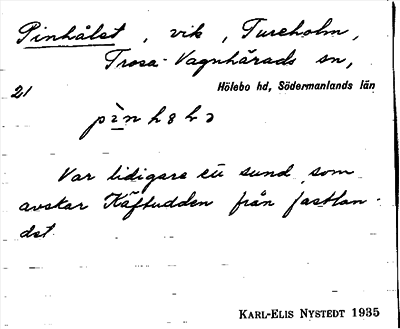 Pinhålet, vik, Tureholm,
Trosa-Vagnhärads sn,
21 Hölebo hd, Södermanlands län
Var tidigare ett sund som
avskar Käftudden från fastlan-
det.
KARL-ELIS NYSTEDT 1935